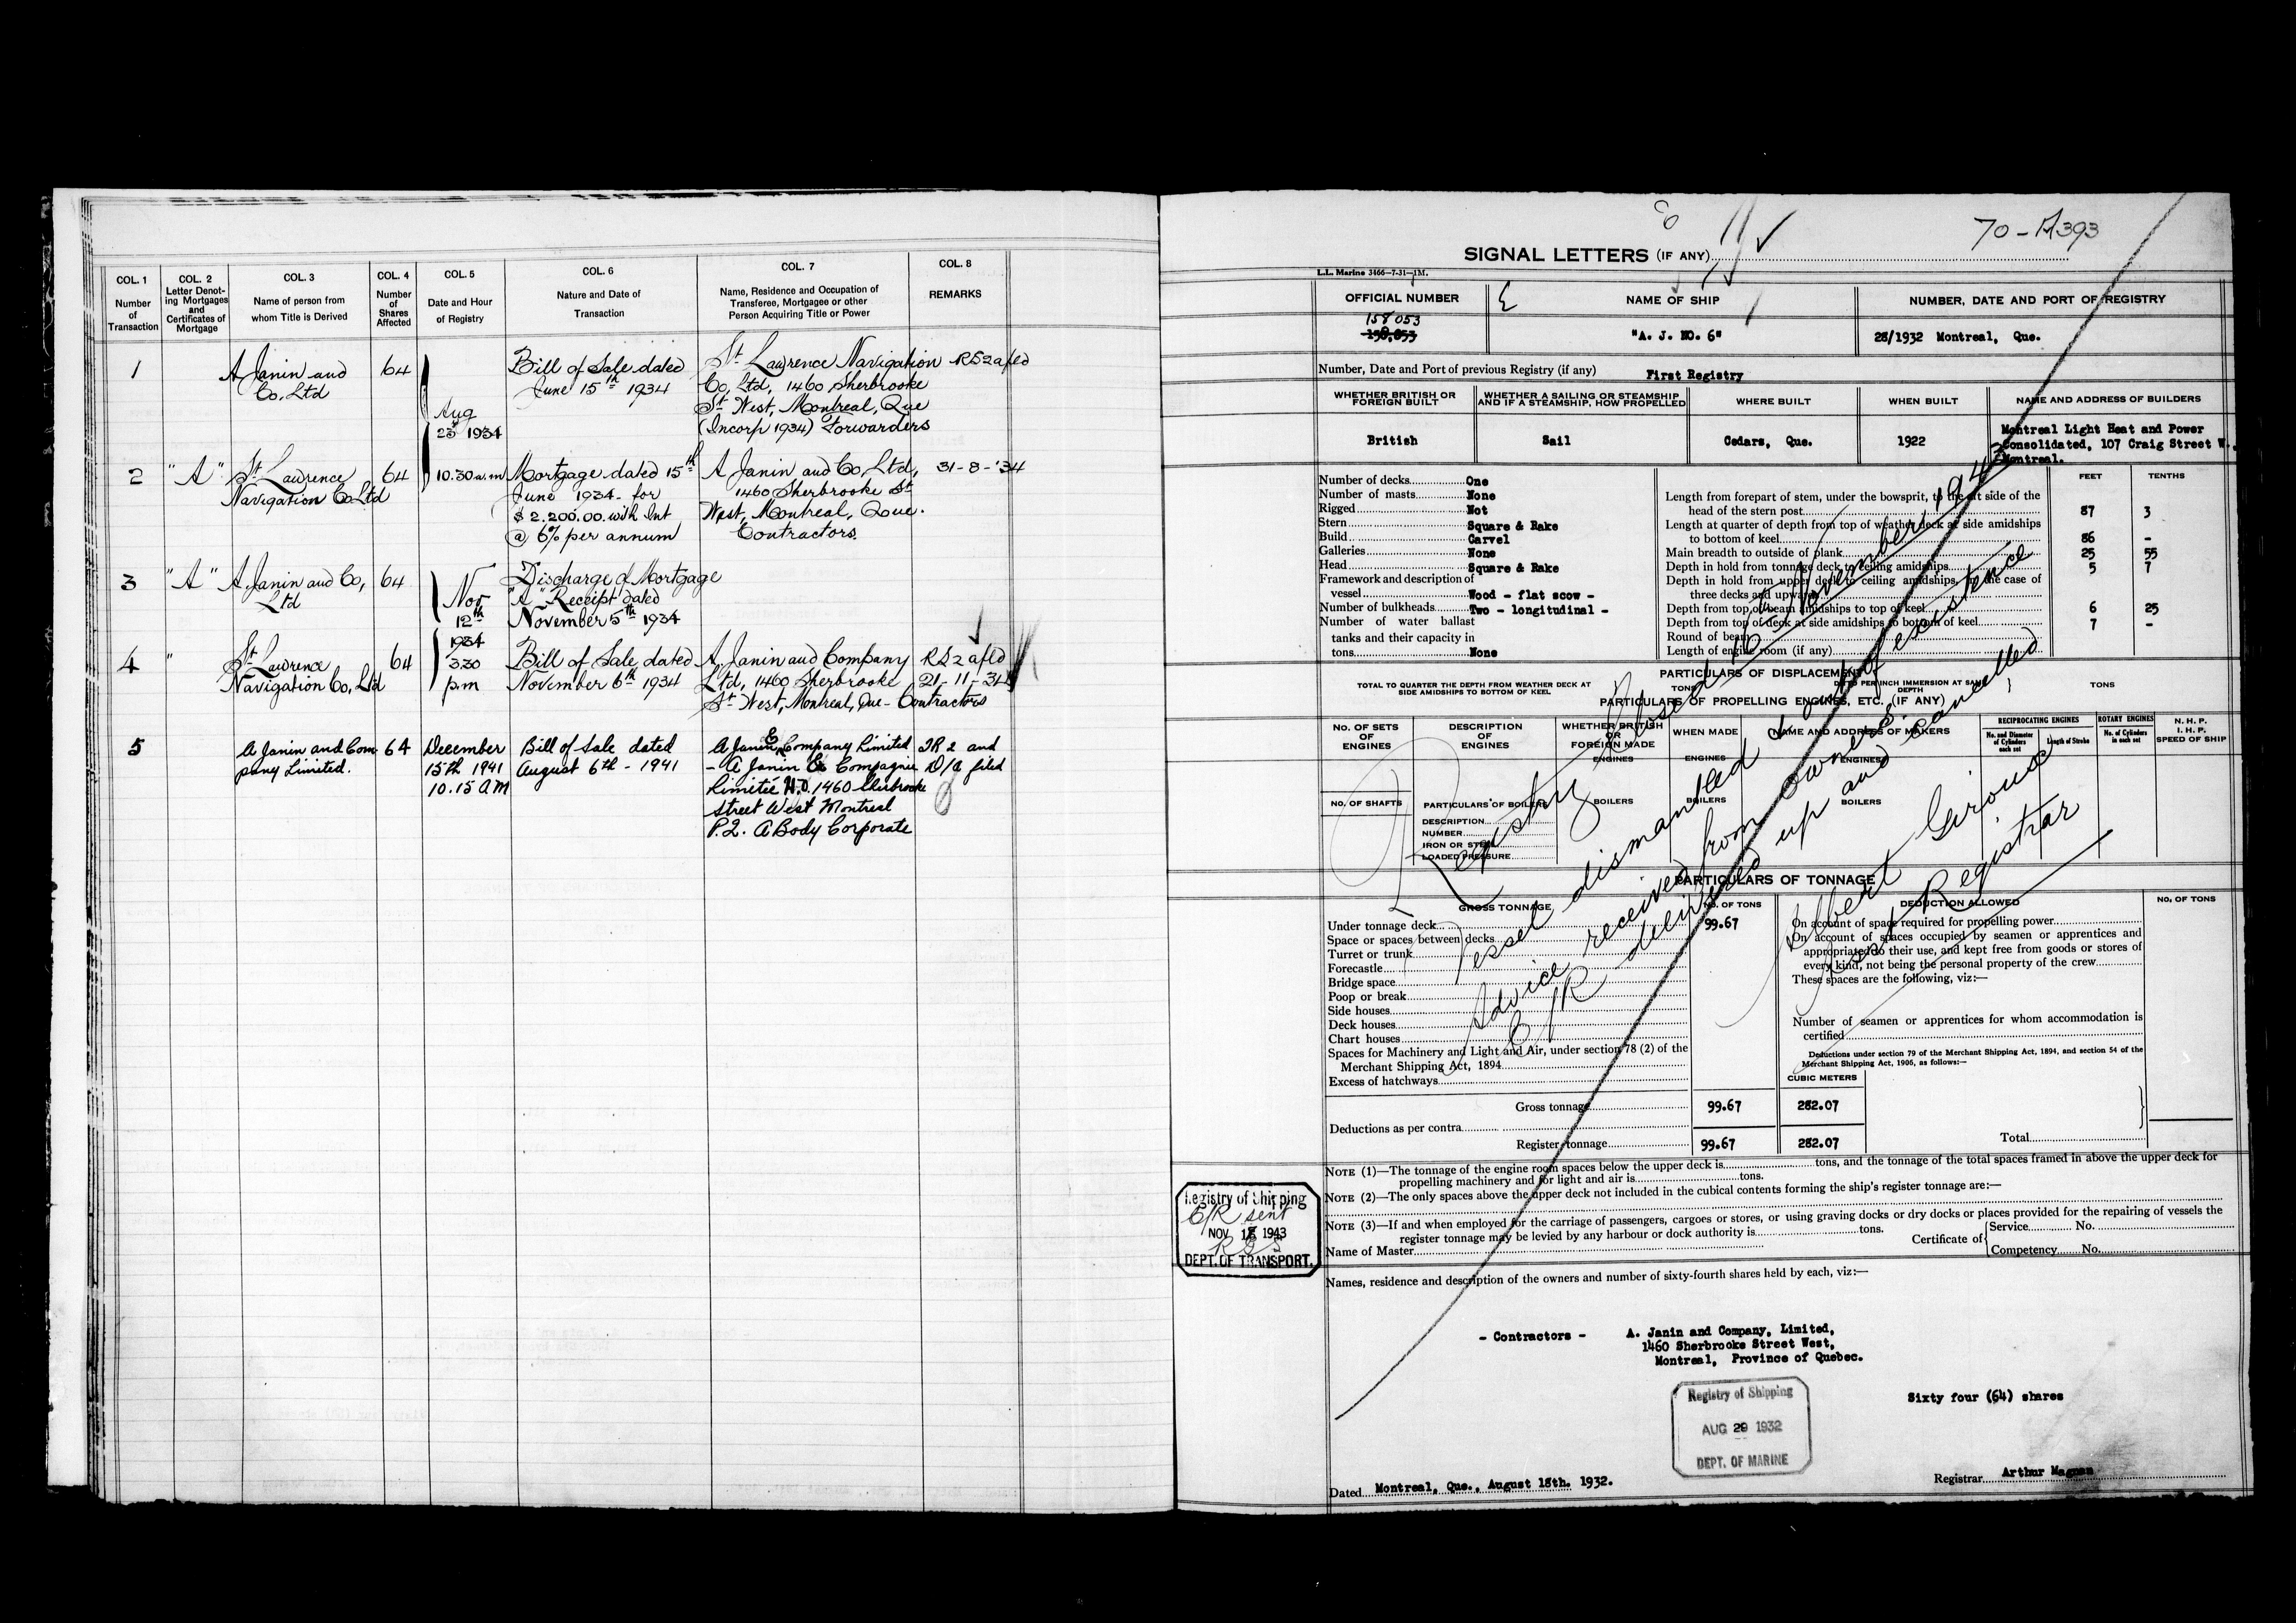 COL. 1
Number
of
Transaction
COL. 2
Letter Denot-
ing Mortgages
and
Certificates of
Mortgage
COL. 3
Name of person from
whom Title is Derived
COL. 4
Number
of
Shares
Affected
COL. 5
Date and Hour
of Registry
COL. 6
Nature and Date of
Transaction
COL. 7
Name, Residence and Occupation of
Transferee, Mortgagee or other
Person Acquiring Title or Power
COL. 8
REMARKS
1
A Janin and
Co, Ltd
64
Aug
23rd 1934
Bill of Sale dated
June 15th 1934
St. Lawrence Navigation
Co, Ltd, 1460 Sherbrooke
St West, Montreal, Que
(Incorp 1934) Forwarders
2
"A"
St. Lawrence
Navigation Co Ltd
64
10.30 a.m
Mortgage dated 15th
June 1934 - for
$2.200.00 with Int
@ 6% per annum
A Janin and Co, Ltd,
1460 Sherbrooke St
West, Montreal, Que.
Contractors.
31-8-'34
3
"A"
A. Janin and Co,
Ltd
64
Nov
12th
1934
Discharge of Mortgage
"A" Receipt dated
November 5th 1934
4
"
St. Lawrence
Navigation Co, Ltd
64
3.30
p.m
Bill of Sale dated
November 6th 1934
A. Janin and Company
Ltd, 1460 Sherbrooke
St West, Montreal, Que - Contractors
21-11-34
5
A Janin and Com-
pany Limited.
64
December
15th 1941
10.15 AM
Bill of Sale dated
August 6th - 1941
A Janin & Company Limited
- A Janin & Compagnie
Limitée H.O. 1460 Sherbrooke
Street West Montreal
P.Q. A Body Corporate
IR 2 and
D/A filed
70-A393
SIGNAL LETTERS (IF ANY)
L.L. Marine 3466-7-31-1M.
OFFICIAL NUMBER
158053
158,053
NAME OF SHIP
"A. J. NO. 6"
NUMBER, DATE AND PORT OF REGISTRY
28/1932 Montreal, Que.
Number, Date and Port of previous Registry (if any)
First Registry
WHETHER BRITISH OR
FOREIGN BUILT
British
WHETHER A SAILING OR STEAMSHIP
AND IF A STEAMSHIP, HOW PROPELLED
Sail
WHERE BUILT
Cedars, Que.
WHEN BUILT
1922
NAME AND ADDRESS OF BUILDERS
Montreal Light Heat and Power
Consolidated, 107 Craig Street W.
Montreal.
Number of decks One
Number of masts None
Rigged Not
Stern Square & Rake
Build Carvel
Galleries None
Head Square & Rake
Framework and description of
vessel Wood - flat scow -
Number of bulkheads Two - longitudinal -
Number of water ballast
tanks and their capacity in
tons None
FEET TENTHS
Length from forepart of stem, under the bowsprit, to the aft side of the
head of the stern post 87 3
Length at quarter of depth from top of weather deck at side amidships
to bottom of keel 86 -
Main breadth to outside of plank 25 55
Depth in hold from tonnage deck to ceiling amidships 5 7
Depth in hold from upper deck to ceiling amidships, in the case of
three decks and upwards
Depth from top of beam amidships to top of keel 6 25
Depth from top of deck at side amidships to bottom of keel 7 -
Round of beam
Length of engine room (if any)
PARTICULARS OF DISPLACEMENT
TOTAL TO QUARTER THE DEPTH FROM WEATHER DECK AT
SIDE AMIDSHIPS TO BOTTOM OF KEEL
TONS
TONS PER INCH IMMERSION AT SAME
DEPTH
TONS
PARTICULARS OF PROPELLING ENGINES, ETC. (IF ANY)
NO. OF SETS
OF
ENGINES
DESCRIPTION
OF
ENGINES
WHETHER BRITISH
OR
FOREIGN MADE
ENGINES
WHEN MADE
ENGINES
NAME AND ADDRESS OF MAKERS
ENGINES
RECIPROCATING ENGINES
No. and Diameter
of Cylinders
each set
Length of Stroke
ROTARY ENGINES
No. of Cylinders
in each set
N. H. P.
I. H. P.
SPEED OF SHIP
NO. OF SHAFTS
PARTICULARS OF BOILERS
DESCRIPTION
NUMBER
IRON OR STEEL
LOADED PRESSURE
BOILERS
BOILERS
BOILERS
Registry Closed 15 November, 1943
Vessel dismantled & out of existence
Advice received from owners.
C/R delivered up and cancelled
Albert Giroux
Asst Registrar
PARTICULARS OF TONNAGE
GROSS TONNAGE
NO. OF TONS
Under tonnage deck 99.67
Space or spaces between decks
Turret or trunk
Forecastle
Bridge space
Poop or break
Side houses
Deck houses
Chart houses
Spaces for Machinery and Light and Air, under section 78 (2) of the
Merchant Shipping Act, 1894
Excess of hatchways
Gross tonnage 99.67 282.07
Deductions as per contra
Register tonnage 99.67 282.07
DEDUCTION ALLOWED
NO. OF TONS
On account of space required for propelling power
On account of spaces occupied by seamen or apprentices and
appropriated to their use, and kept free from goods or stores of
every kind, not being the personal property of the crew
These spaces are the following, viz:—
Number of seamen or apprentices for whom accommodation is
certified
Deductions under section 79 of the Merchant Shipping Act, 1894, and section 54 of the
Merchant Shipping Act, 1906, as follows:—
CUBIC METERS
Total
NOTE (1)—The tonnage of the engine room spaces below the upper deck is tons, and the tonnage of the total spaces framed in above the upper deck for
propelling machinery and for light and air is tons.
NOTE (2)—The only spaces above the upper deck not included in the cubical contents forming the ship's register tonnage are:—
NOTE (3)—If and when employed for the carriage of passengers, cargoes or stores, or using graving docks or dry docks or places provided for the repairing of vessels the
register tonnage may be levied by any harbour or dock authority is tons.
Name of Master
Certificate of
Service No.
Competency No.
Registry of Shipping
C/R sent
NOV 1943
DEPT. OF TRANSPORT.
Names, residence and description of the owners and number of sixty-fourth shares held by each, viz:—
- Contractors -
A. Janin and Company, Limited,
1460 Sherbrooke Street West,
Montreal, Province of Quebec.
Sixty four (64) shares
Registry of Shipping
AUG 29 1932
DEPT. OF MARINE
Dated Montreal, Que., August 18th. 1932.
Registrar Arthur Magnan